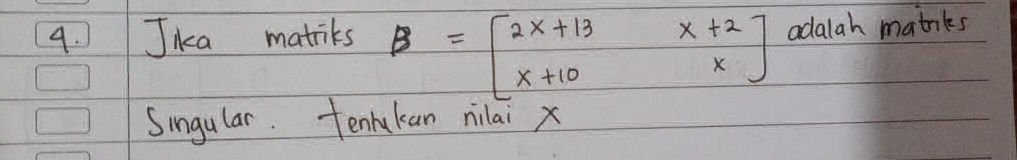 4. Jika matriks B = [2x+13 x+2] adalah matriks
[x+10 x]
Singular. tentukan nilai x